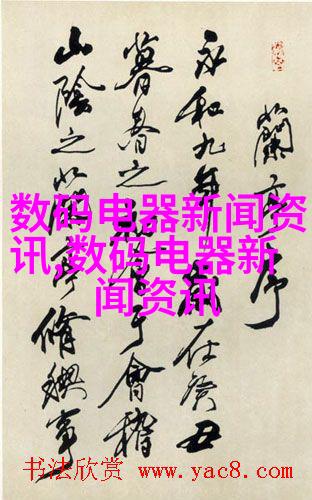 蘭亭序
永和九年歲在癸丑
暮春之 于會稽
山陰之蘭亭脩禊事
数码电器新闻资
讯,数码电器新
闻资讯
书法欣赏 www.yac8.com